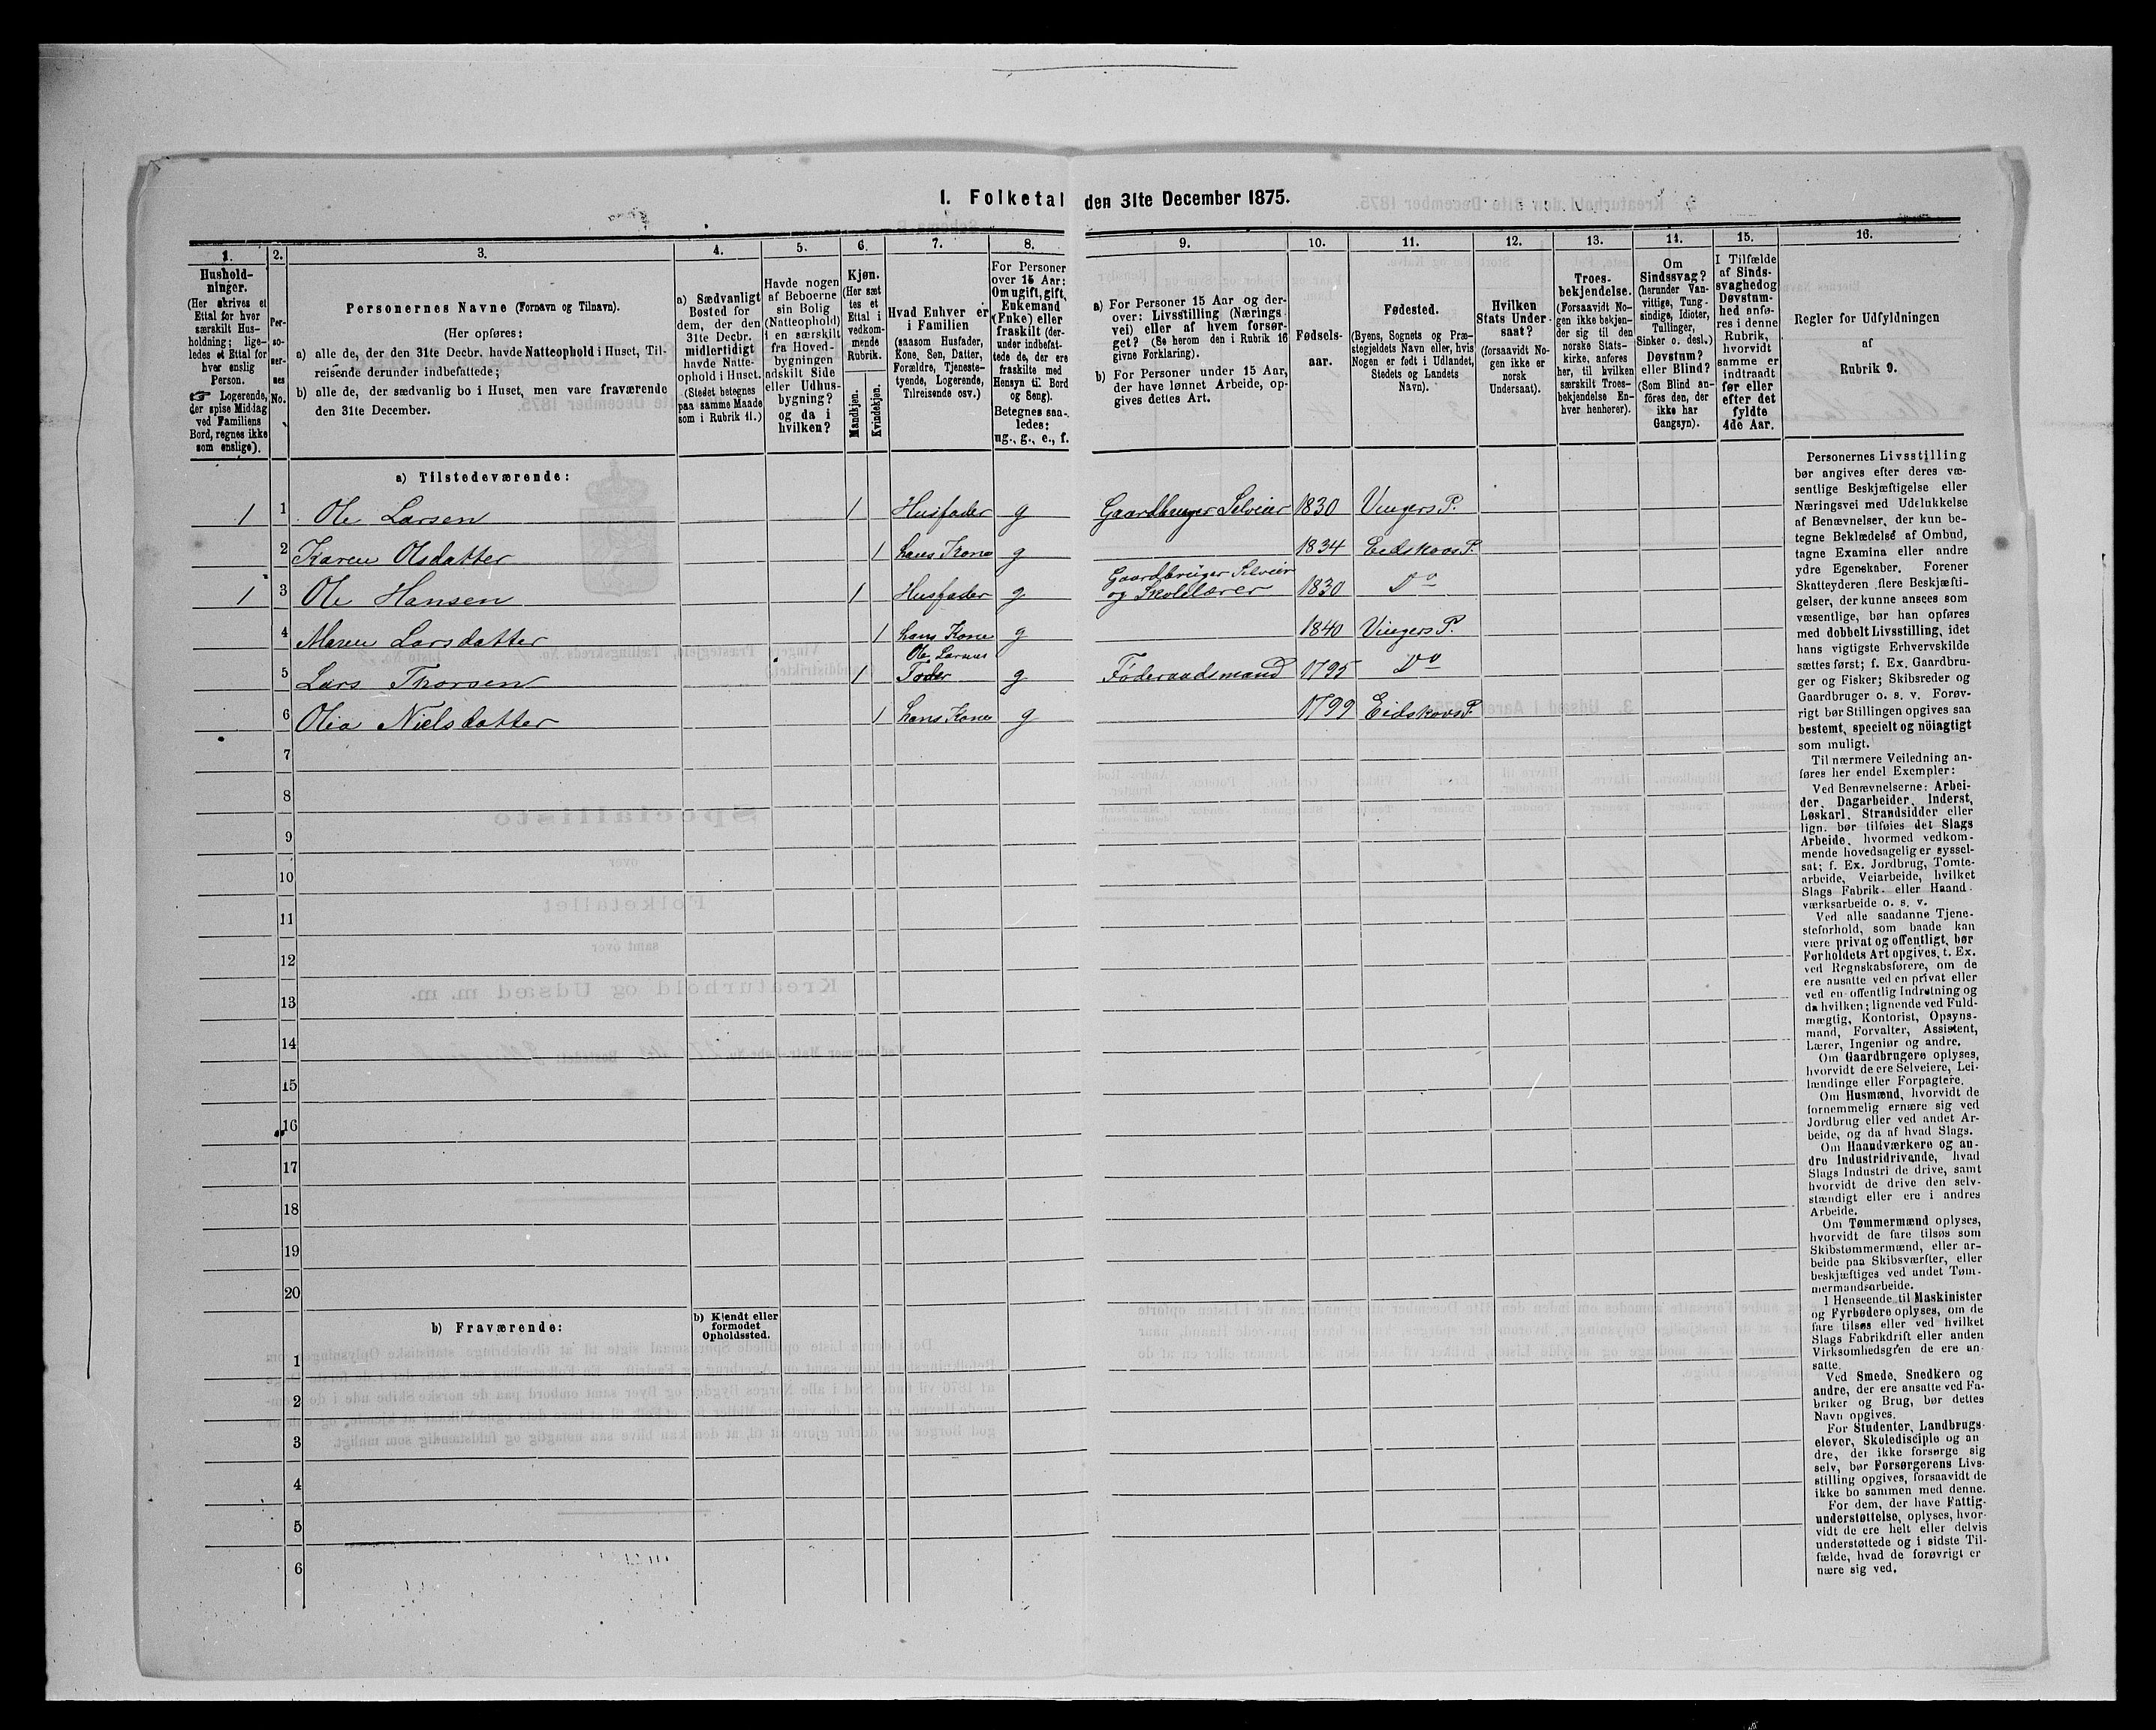 1. Folketal den 31te December 1875.
1.
2.
3.
4.
5.
6.
7.
8.
9.
10.
11.
12.
13.
14.
15.
16.
Hushold-
ninger.
(Her skrives et
Ettal for hver
særskilt Hus-
holdning; lige-
ledes et Ettal for
hver enslig
Person.
☞ Logerende,
der spise Middag
ved Familiens
Bord, regnes ikke
som enslige).
Per-
so-
ner-
nes
No.
Personernes Navne (Fornavn og Tilnavn).
(Her opføres:
a) alle de, der den 31te Decbr. havde Natteophold i Huset, Til-
reisende derunder indbefattede;
b) alle de, der sædvanlig bo i Huset, men vare fraværende
den 31te December.
a) Sædvanligt
Bosted for
dem, der den
31te Decbr.
midlertidigt
havde Natte-
ophold i Huset.
(Stedet betegnes
paa samme Maade
som i Rubrik 11.)
Havde nogen
af Beboerne
sin Bolig
(Natteophold)
i en særskilt
fra Hoved-
bygningen
adskilt Side
eller Udhus-
bygning?
og da i
hvilken?
Kjøn.
(Her sæt
tes et
Ettal i
vedkom-
mende
Rubrik.
Mandkjøn.
Kvindekjøn.
Hvad Enhver er
i Familien
(saasom Husfader,
Kone, Søn, Datter,
Forældre, Tjeneste-
tyende, Logerende,
Tilreisende osv.)
For Personer
over 15 Aar:
Om ugift, gift,
Enkemand
(Enke) eller
fraskilt (der-
under indbefat-
tede de, der ere
fraskilte med
Hensyn til Bord
og Seng).
Betegnes saa-
ledes:
ug., g., e., f.
a) For Personer 15 Aar og der-
over: Livsstilling (Nærings
vei) eller af hvem forsør-
get? (Se herom den i Rubrik 16
givne Forklaring).
b) For Personer under 15 Aar,
der have lønnet Arbeide, op-
gives dettes Art.
Fødsels-
aar.
Fødested.
(Byens, Sognets og Præ-
stegjeldets Navn eller, hvis
Nogen er født i Udlandet,
Stedets og Landets
Navn).
Hvilken
Stats Under-
saat?
(forsaavidt No-
gen ikke er
norsk
Undersaat).
Troes-
bekjendelse.
(Forsaavidt No-
gen ikke bekjen-
der sig til den
norske Stats-
kirke, anføres
her, til hvilken
særskilt Troes-
bekjendelse En-
hver henhører).
Om
Sindssvag?
(herunder Van-
vittige, Tung-
sindige, Idioter,
Tullinger,
Sinker o. desl.)
Døvstum?
eller Blind?
(Som Blind an-
føres den, der
ikke har
Gangsyn).
I Tilfælde
af Sinds-
svaghed og
Døvstum-
hed anfø-
res i denne
Rubrik,
hvorvidt
samme er
indtraadt
før eller
efter det
fyldte
4de Aar.
Regler for Udfyldningen
af
Rubrik 9.
a) Tilstedeværende:
1 1 Ole Larsen 1 Husfader g Gaardbruger Selveier 1830 Vingers P.
2 Karen Olsdatter 1 hans Kone g 1834 Eidskovs P.
1 3 Ole Hansen 1 Husfader g Gaardbruger Selveier
og Skolelærer 1830 Do
4 Maren Larsdatter 1 hans Kone g 1840 Vingers P.
5 Lars Thorsen 1 Ole Larsens
Fader g Føderaadsmand 1795 Do
6 Olia Nielsdatter 1 hans Kone g 1799 Eidskovs P.
7
8
9
10
11
12
13
14
15
16
17
18
19
20
b) Fraværende:
b) Kjendt eller
formodet
Opholdssted.
1
2
3
4
5
6
Personernes Livsstilling
bør angives efter deres væ-
sentlige Beskjæftigelse eller
Næringsvei med Udelukkelse
af Benævnelser, der kun be-
tegne Beklædelse af Ombud,
tagne Examina eller andre
ydre Egenskaber. Forener
Skatteyderen flere Beskjæfti-
gelser, der kunne ansees som
væsentlige, bør han opføres
med dobbelt Livsstilling, idet
hans vigtigste Erhvervskilde
sættes først; f. Ex. Gaardbru-
ger og Fisker; Skibsreder og
Gaardbruger o. s. v. Forøv-
rigt bør Stillingen opgives saa
bestemt, specielt og nöiagtigt
som muligt.
Til nærmere Veiledning an-
føres her endel Exempler:
Ved Benævnelserne: Arbei-
der, Dagarbeider, Inderst,
Løskarl, Strandsidder eller
lign. bør tilføies det Slags
Arbeide, hvormed vedkom-
mende hovedsagelig er syssel-
sat; f. Ex. Jordbrug, Tomte-
arbeide, Veiarbeide, hvilket
Slags Fabrik- eller Haand-
værksarbeide o. s. v.
Ved alle saadanne Tjene-
steforhold, som baade kan
være privat og offentligt, bør
Forholdets Art opgives, t. Ex.
ved Regnskabsførere, om de
ere ansatte ved en privat eller
ved en offentlig Indretning og
da hvilken; lignende ved Fuld-
mægtig, Kontorist, Opsyns-
mand, Forvalter, Assistent,
Lærer, Ingeniør og andre.
Om Gaardbrugere oplyses,
hvorvidt de ere Selveiere, Lei-
lændinge eller Forpagtere.
Om Husmænd, hvorvidt de
fornemmelig ernære sig ved
Jordbrug eller ved andet Ar-
beide, og da af hvad Slags.
Om Haandværkere og an-
dre Industridrivende, hvad
Slags Industri de drive, samt
hvorvidt de drive den selv-
stændigt eller ere i andres
Arbeide.
Om Tømmermænd oplyses,
hvorvidt de fare tilsøs som
Skibstømmermænd, eller ar-
beide paa Skibsværfter, eller
beskjæftiges ved andet Tøm-
mermandsarbeide.
I Henseende til Maskinister
og Fyrbødere oplyses, om de
fare tilsøs eller ved hvilket
Slags Fabrikdrift eller anden
Virksomhedsgren de ere an-
satte.
Ved Smede, Snedkere og
andre, der ere ansatte ved Fa-
briker og Brug, bør dettes
Navn opgives.
For Studenter, Landbrugs-
elever, Skoledisciple og an
dre, der ikke forsørge sig
selv, bør Forsørgerens Livs-
stilling opgives, forsaavidt de
ikke bo sammen med denne.
For dem, der have Fattig-
understøttelse, oplyses, hvor-
vidt de ere helt eller delvis
understøttede og i sidste Til-
fælde, hvad de forøvrigt er
nære sig ved.